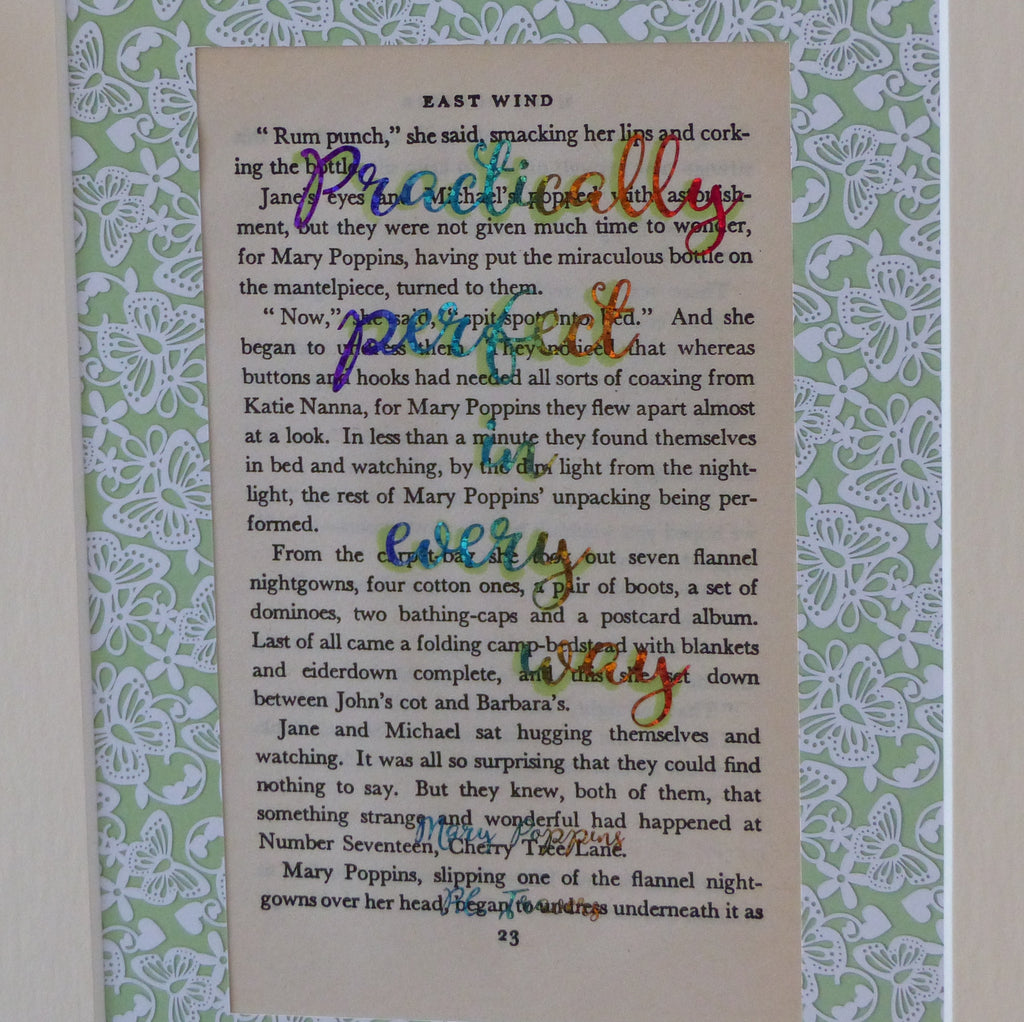 EAST WIND
“ Rum punch,” she said, smacking her lips and cork-
ing the bottle.
Practically
Jane's eyes and Michael's popped with astonish-
ment, but they were not given much time to wonder,
for Mary Poppins, having put the miraculous bottle on
the mantelpiece, turned to them.
“ Now,” she said, “ spit-spot into bed.” And she
perfect
began to undress them. They noticed that whereas
buttons and hooks had needed all sorts of coaxing from
Katie Nanna, for Mary Poppins they flew apart almost
at a look. In less than a minute they found themselves
in
in bed and watching, by the dim light from the night-
light, the rest of Mary Poppins' unpacking being per-
formed.
every
From the carpet-bag she took out seven flannel
nightgowns, four cotton ones, a pair of boots, a set of
dominoes, two bathing-caps and a postcard album.
Last of all came a folding camp-bedstead with blankets
way
and eiderdown complete, and this she set down
between John's cot and Barbara's.
Jane and Michael sat hugging themselves and
watching. It was all so surprising that they could find
nothing to say. But they knew, both of them, that
something strange and wonderful had happened at
Mary Poppins
Number Seventeen, Cherry Tree Lane.
Mary Poppins, slipping one of the flannel night-
gowns over her head, began to undress underneath it as
PL Travers
23